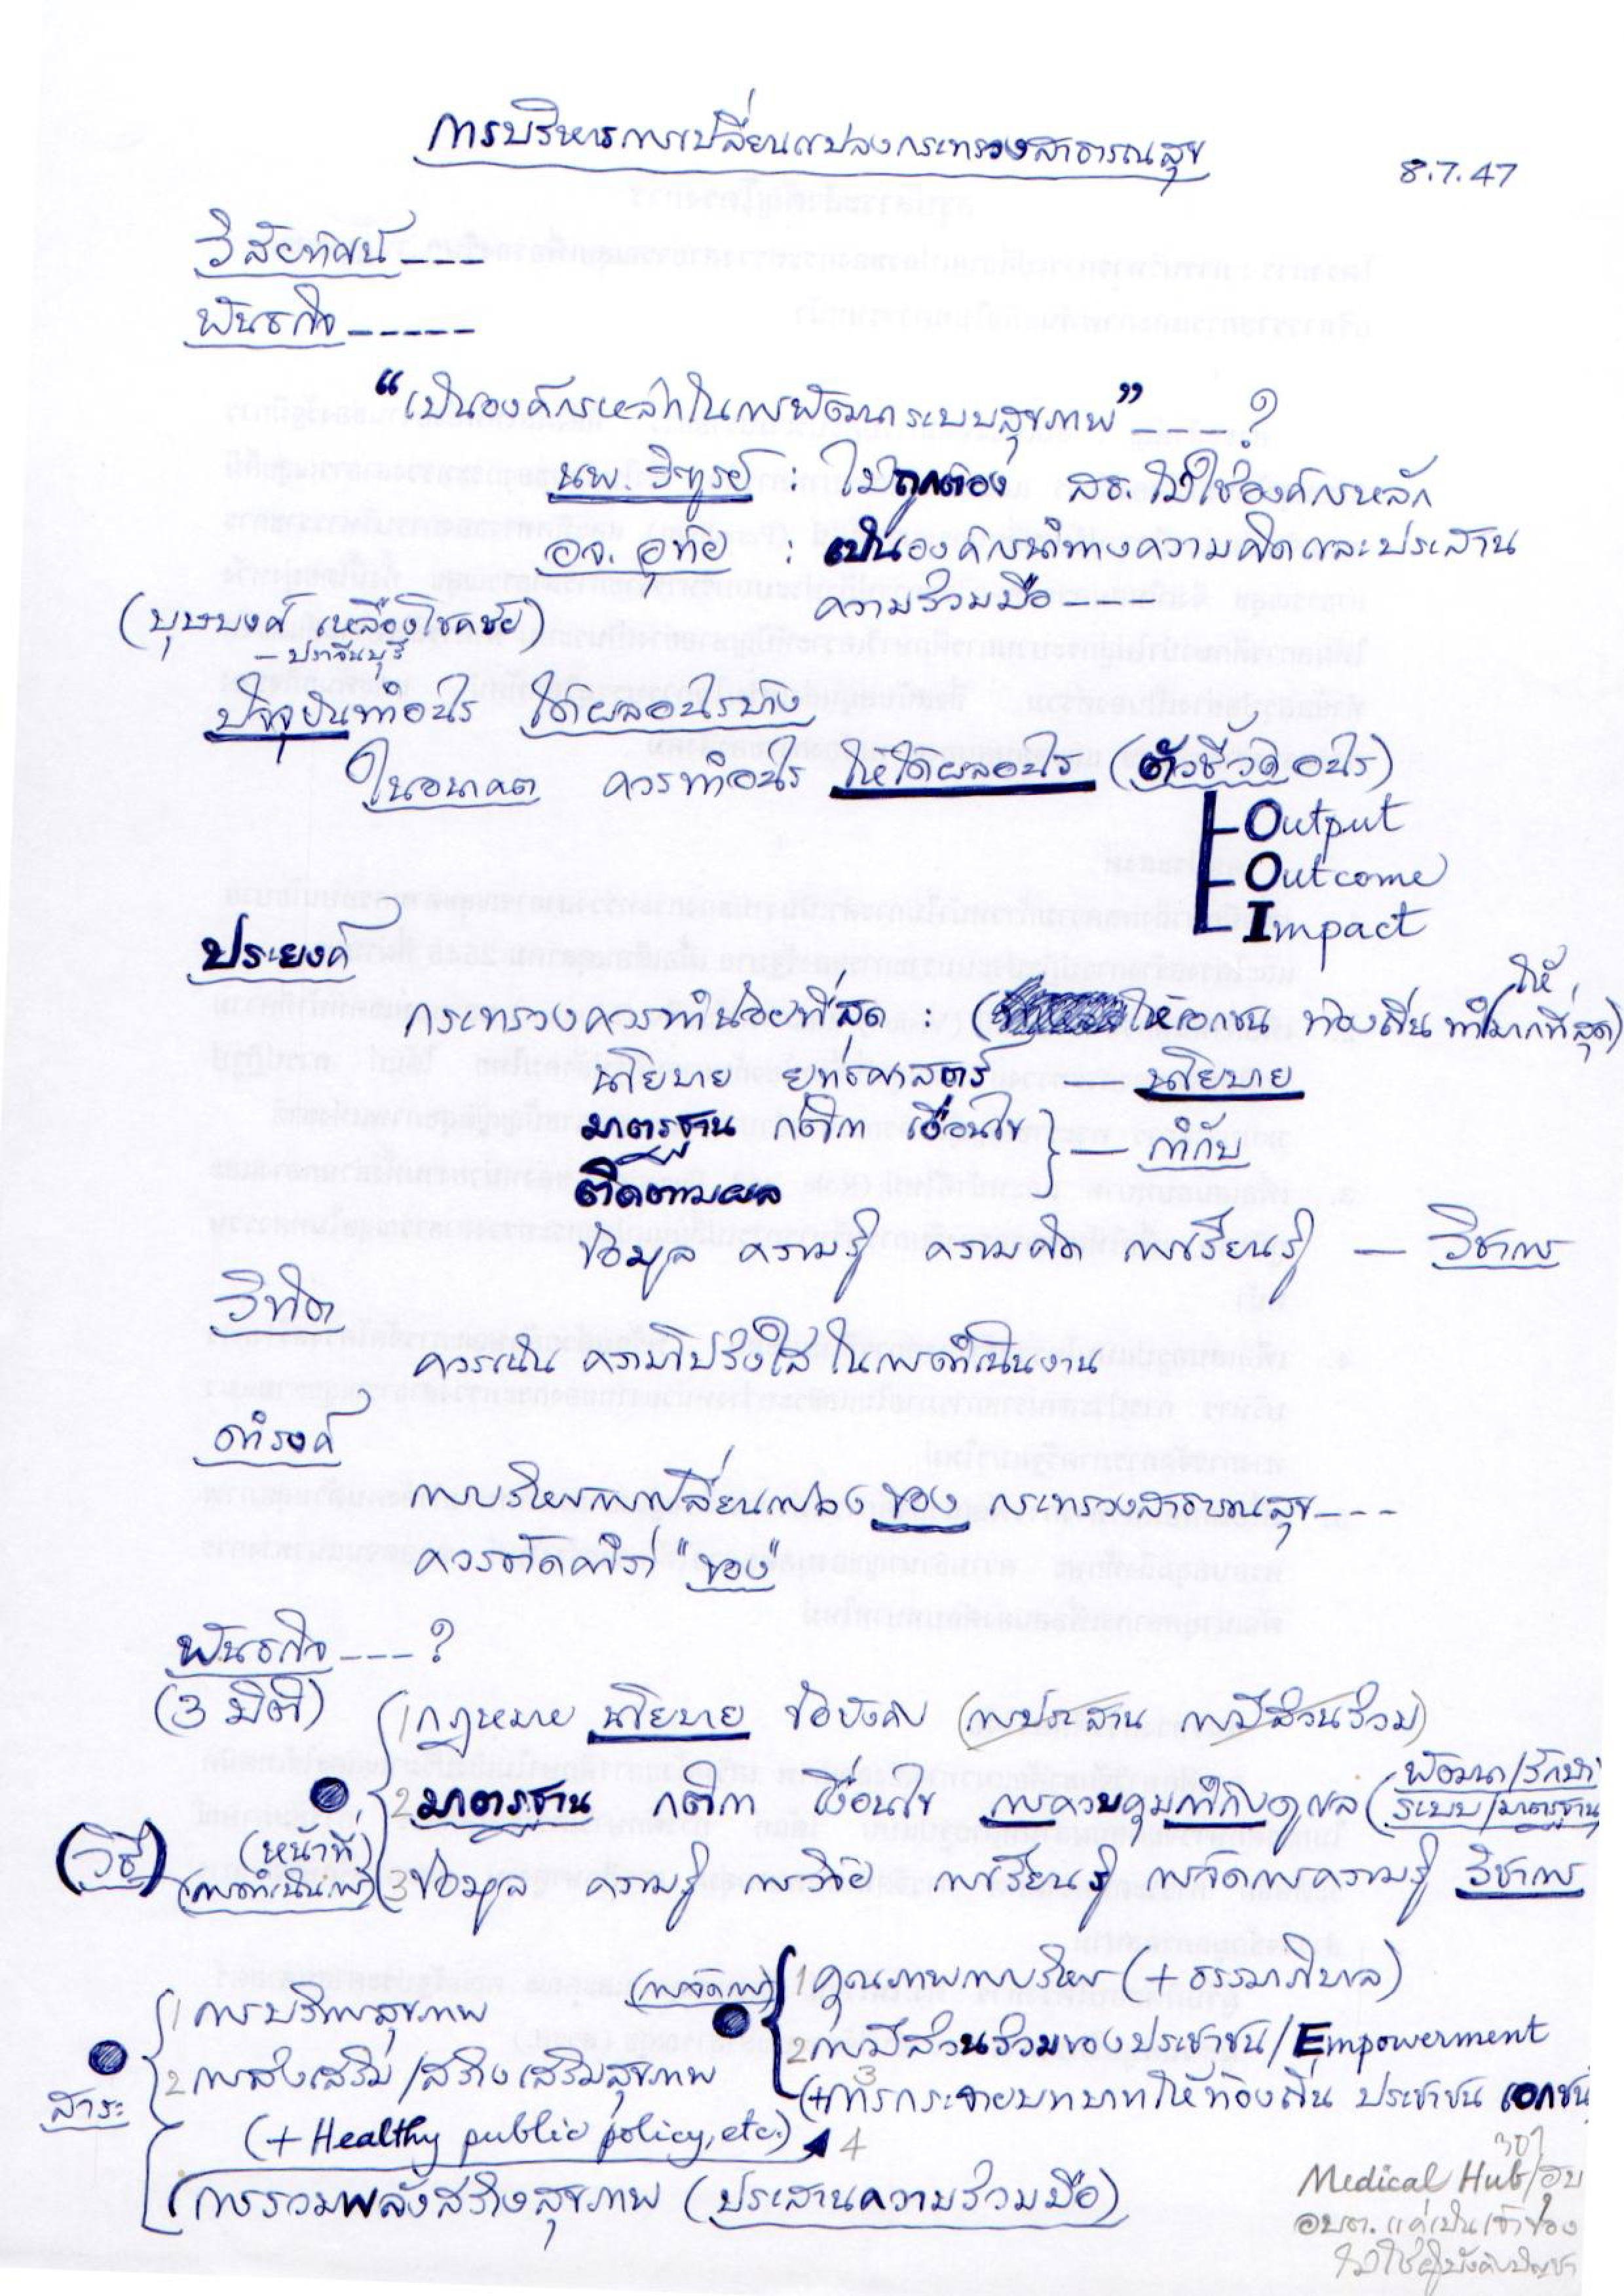 การบริหารการเปลี่ยนแปลงกระทรวงสาธารณสุข
8.7.47
วิสัยทัศน์ ---
พันธกิจ -----
"เป็นองค์กรหลักในการพัฒนาระบบสุขภาพ" ----?
นพ. วิฑูรย์ : ไม่ถูกต้อง สธ. ไม่ใช่องค์กรหลัก
อจ. อุทัย : เป็นองค์กรนำทางความคิดและประสาน
ความร่วมมือ ----
(บุษบงค์ เหลืองโชคชัย)
- ปราจีนบุรี
ปัจจุบันทำอะไร ได้ผลอะไรบ้าง
ในอนาคต ควรทำอะไร ให้ได้ผลอะไร (ตัวชี้วัดอะไร)
Output
Outcome
Impact
ประยงค์
กระทรวงควรทำน้อยที่สุด : ( ให้เอกชน ท้องถิ่น ทำให้มากที่สุด)
นโยบาย ยุทธศาสตร์ — นโยบาย
มาตรฐาน กติกา เงื่อนไข
ติดตามผล
— กำกับ
ข้อมูล ความรู้ ความคิด การเรียนรู้ — วิชาการ
วิทิต
ควรเน้น ความโปร่งใส ในการดำเนินงาน
ดำรงค์
การบริหารการเปลี่ยนแปลง ของ กระทรวงสาธารณสุข----
ควรตัดคำว่า "ของ"
พันธกิจ ----?
(3 มิติ)
1 กฎหมาย นโยบาย ข้อบังคับ (การประสาน การมีส่วนร่วม)
2 มาตรฐาน กติกา เงื่อนไข การควบคุมกำกับดูแล (พัฒนา/รักษา
ระบบ/มาตรฐาน
(วิธี) (หน้าที่)
(การดำเนินการ) 3 ข้อมูล ความรู้ การวิจัย การเรียนรู้ การจัดการความรู้ วิชาการ
(การจัดการ) 1 คุณภาพการบริหาร (+ ธรรมาภิบาล)
2 การมีส่วนร่วมของประชาชน/Empowerment
3 (+การกระจายบทบาทให้ท้องถิ่น ประชาชน เอกชน
สาระ
1 การบริการสุขภาพ
2 การส่งเสริม/สร้างเสริมสุขภาพ
(+ Healthy public policy, etc.) 4
(การรวมพลังสร้างสุขภาพ (ประสานความร่วมมือ)
Medical Hub/
อบต. แค่เป็นเจ้าของ
ไม่ใช่ผู้บังคับบัญชา